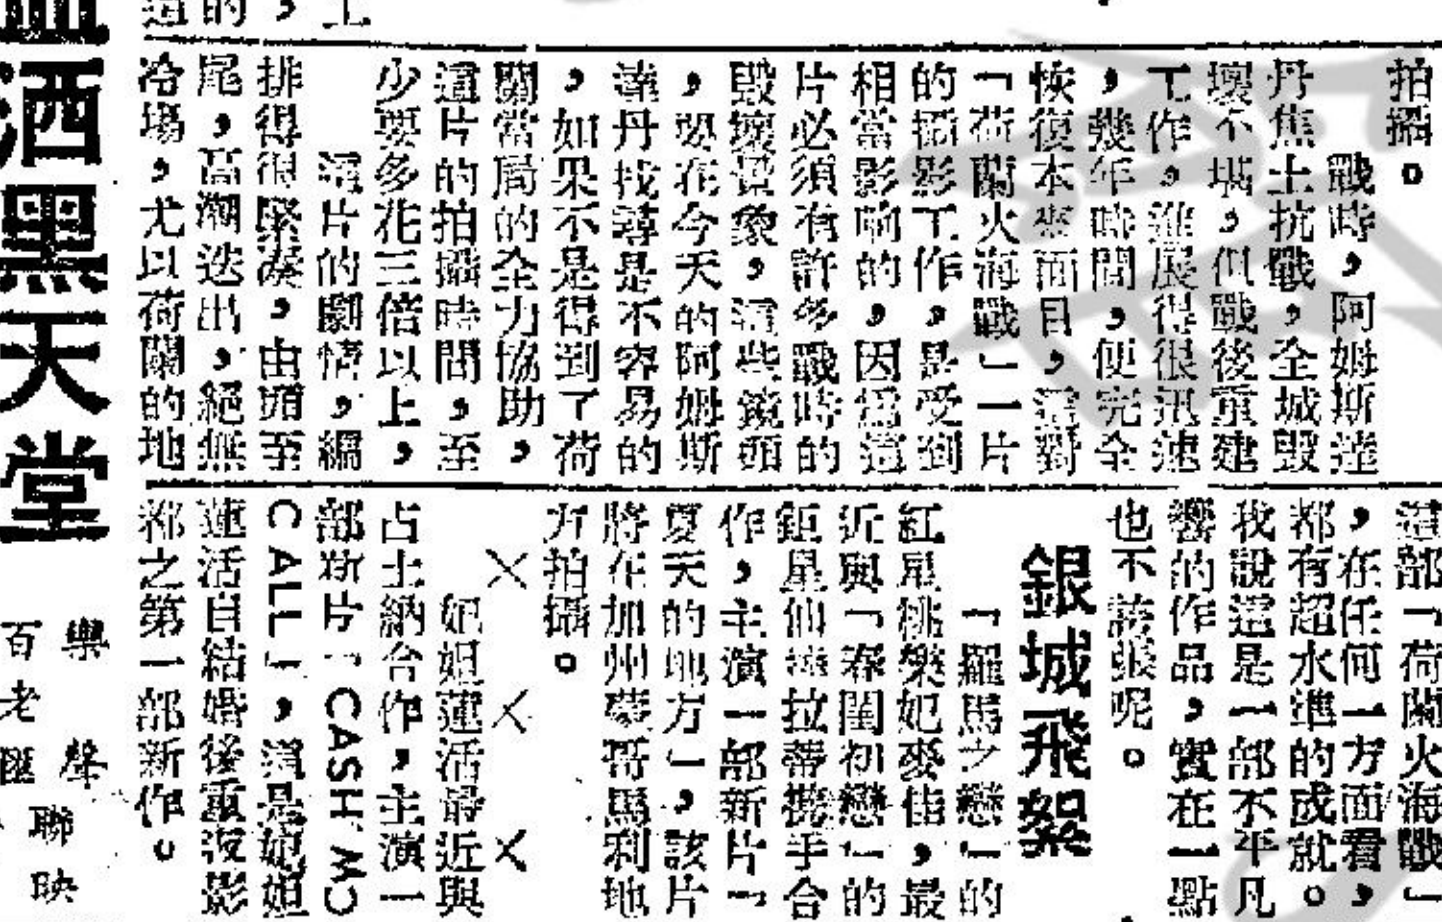 拍攝。
戰時，阿姆斯達
丹焦土抗戰，全城毀
壞不堪，但戰後重建
工作，進展得很迅速
，幾年時間，便完全
恢復本來面目，這對
「荷蘭火海戰」一片
的攝影工作，是受到
相當影响的，因爲這
片必須有許多戰時的
毀壞景象，這些鏡頭
，要在今天的阿姆斯
達丹找尋是不容易的
，如果不是得到了荷
蘭當局的全力協助，
這片的拍攝時間，至
少要多花三倍以上，
這片的劇情，編
排得很緊凑，由頭至
尾，高潮迭出，絕無
冷場，尤以荷蘭的地
這部「荷蘭火海戰」
，在任何一方面看，
都有超水準的成就。
我說這是一部不平凡
響的作品，實在一點
也不誇張呢。
銀城飛絮
「羅馬之戀」的
紅星桃樂妃麥佳，最
近與「春閨初戀」的
鉅星仙達拉蒂携手合
作，主演一部新片「
夏天的地方」，該片
將在加州蒙哥馬利地
方拍攝。
× × ×
妮妲蓮活最近與
占士納合作，主演一
部新片「CASH MC
CALL」，這是妮妲
蓮活自結婚後重返影
都之第一部新作。
洒黑天堂
樂聲
百老匯
聯映